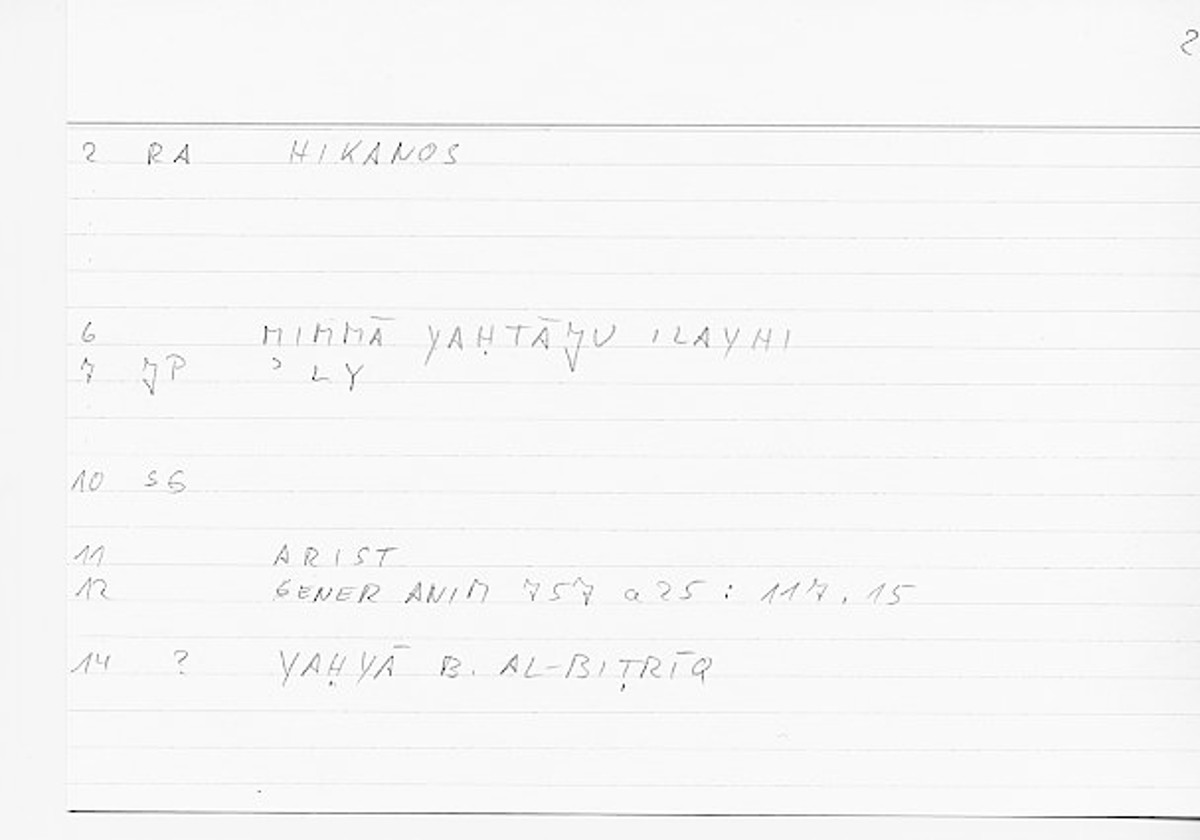 2
2 RA HIKANOS
6 MIMMĀ YAḤTĀJU ILAYHI
7 JP ʾLY
10 SG
11 ARIST
12 GENER ANIM 757 a25 : 117,15
14 ? YAḤYĀ B. AL-BIṬRĪQ